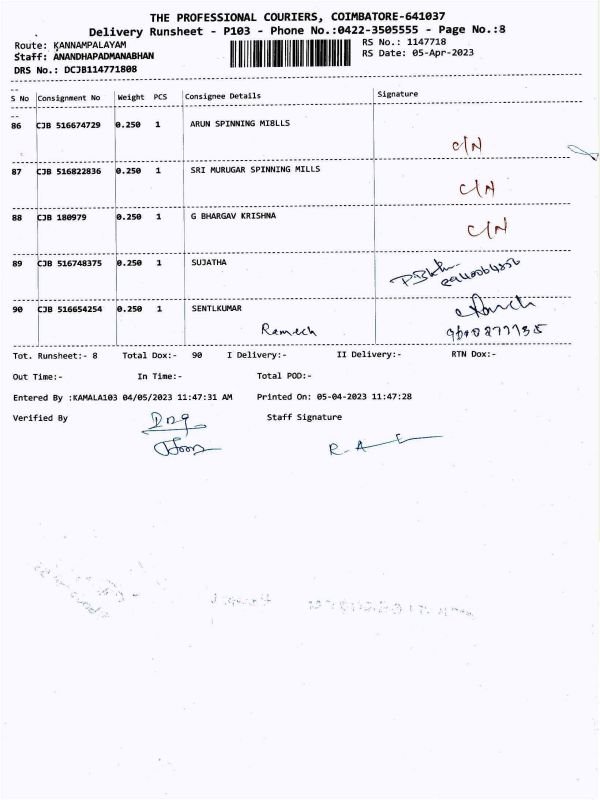 THE PROFESSIONAL COURIERS, COIMBATORE-641037
Delivery Runsheet - P103 - Phone No.:0422-3505555 - Page No.:8
Route: KANNAMPALAYAM
RS No.: 1147718
Staff: ANANDHAPADMANABHAN
RS Date: 05-Apr-2023
DRS No.: DCJB114771808
S No Consignment No Weight PCS Consignee Details Signature
86 CJB 516674729 0.250 1 ARUN SPINNING MI8LLS
C/N
87 CJB 516822836 0.250 1 SRI MURUGAR SPINNING MILLS
C/N
88 CJB 180979 0.250 1 G BHARGAV KRISHNA
C/N
89 CJB 516748375 0.250 1 SUJATHA
90 CJB 516654254 0.250 1 SENTLKUMAR
Ramech
Tot. Runsheet:- 8 Total Dox:- 90 I Delivery:- II Delivery:- RTN Dox:-
Out Time:- In Time:- Total POD:-
Entered By :KAMALA103 04/05/2023 11:47:31 AM Printed On: 05-04-2023 11:47:28
Verified By Staff Signature